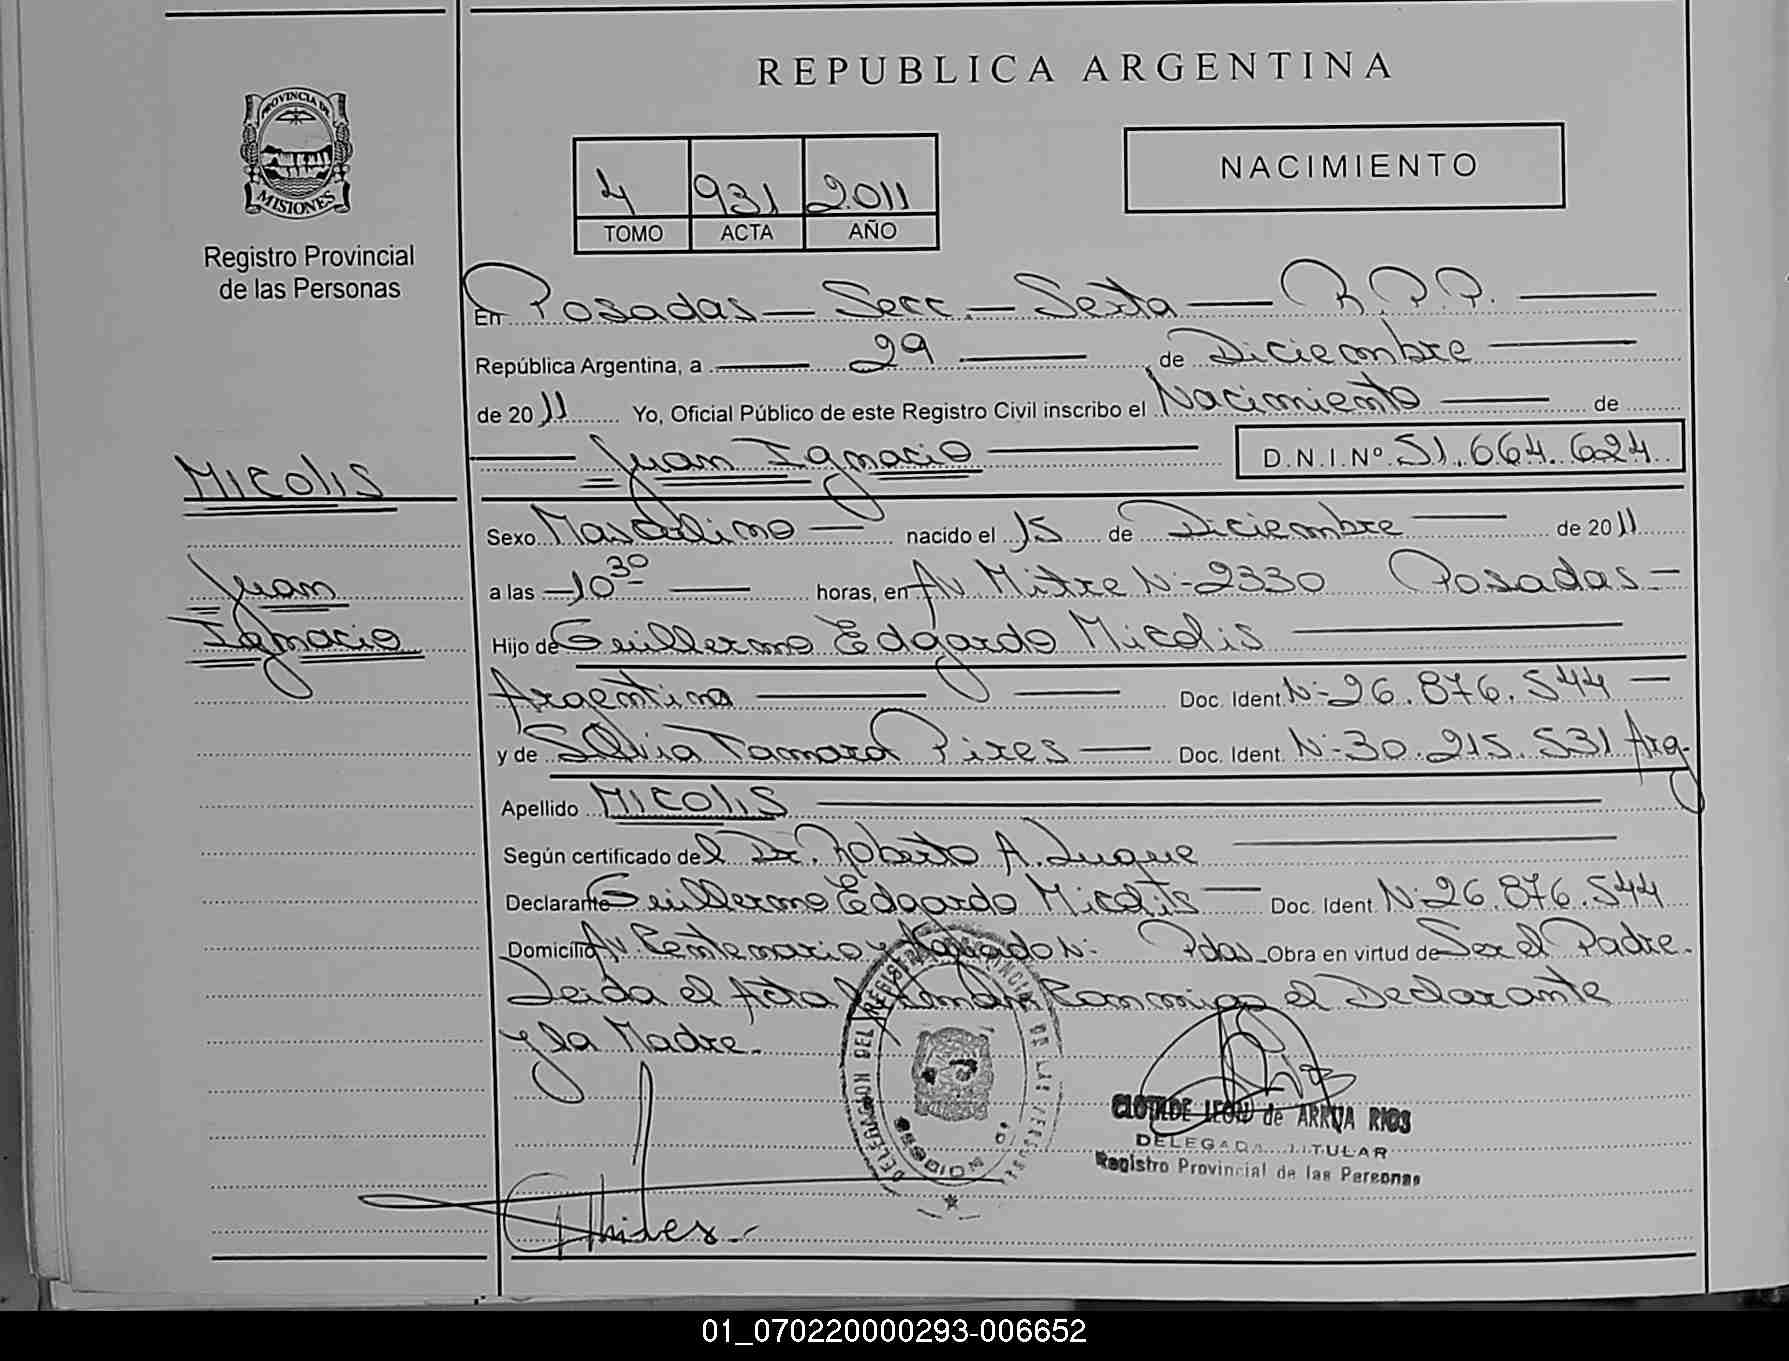 REPUBLICA ARGENTINA
PROVINCIA DE
MISIONES
Registro Provincial
de las Personas
NACIMIENTO
4 931 2011
TOMO ACTA AÑO
En Posadas — Secc. — Sexta — R.P.P. —
República Argentina, a — 29 — de Diciembre —
de 2011 Yo, Oficial Público de este Registro Civil inscribo el Nacimiento — de
— Juan Ignacio — D.N.I.Nº 51.664.624
MICOLIS
Juan
Ignacio
Sexo Masculino — nacido el 15 de Diciembre — de 2011
a las — 10 30 — horas, en Av Mitre Nº 2330 Posadas —
Hijo de Guillermo Edgardo Micolis —
Argentina — — Doc. Ident. Nº 26.876.544 —
y de Silvia Tamara Pires — Doc. Ident. Nº 30.215.531 Arg.
Apellido MICOLIS —
Según certificado del Dr. Roberto A. Luque —
Declarante Guillermo Edgardo Micolis — Doc. Ident. Nº 26.876.544
Domicilio Av Centenario y Nº Pdas. Obra en virtud de Ser el Padre.
Leida el Acta Firman Conmigo el Declarante
y la Madre.
DELEGACION DEL REGISTRO PROVINCIAL DE LAS PERSONAS
CLOTILDE LEON de ARRUA RIOS
DELEGADA TITULAR
Registro Provincial de las Personas
01_070220000293-006652